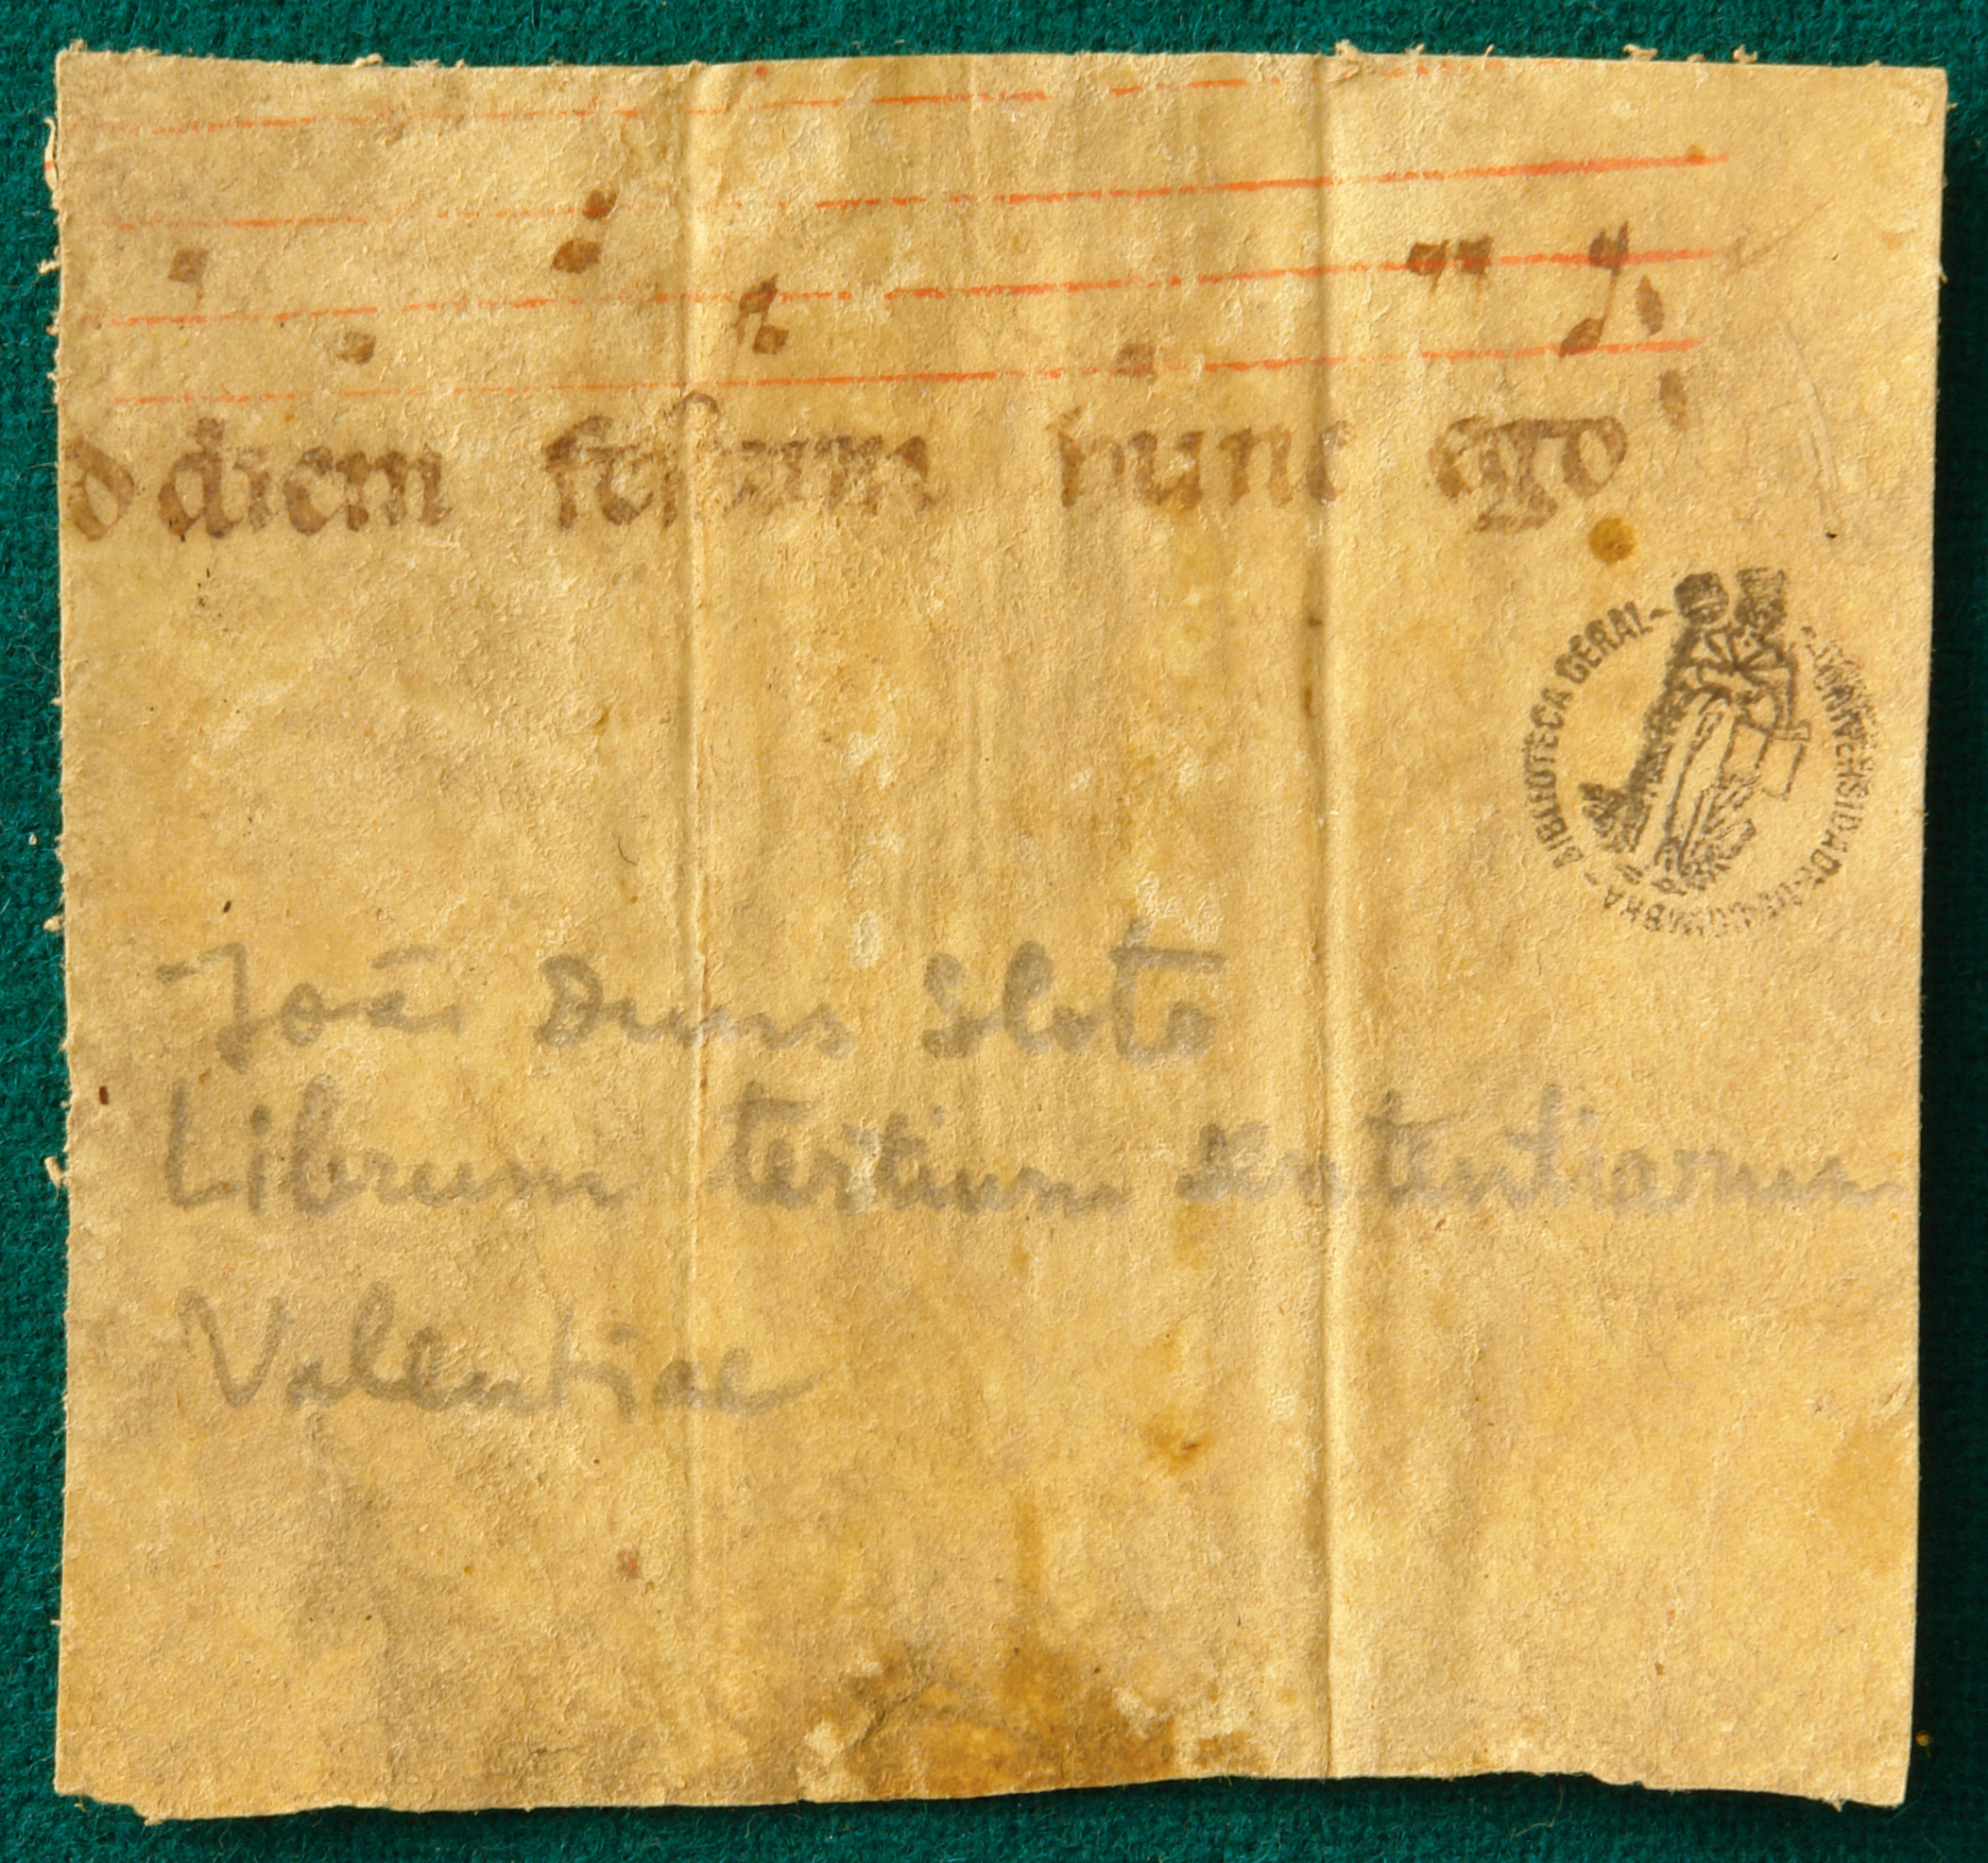 d diem festum nunc ego
BIBLIOTECA GERAL - UNIVERSIDADE DE COIMBRA -
João Duns Scoto
Librum tertium sententiarum
Valentiae